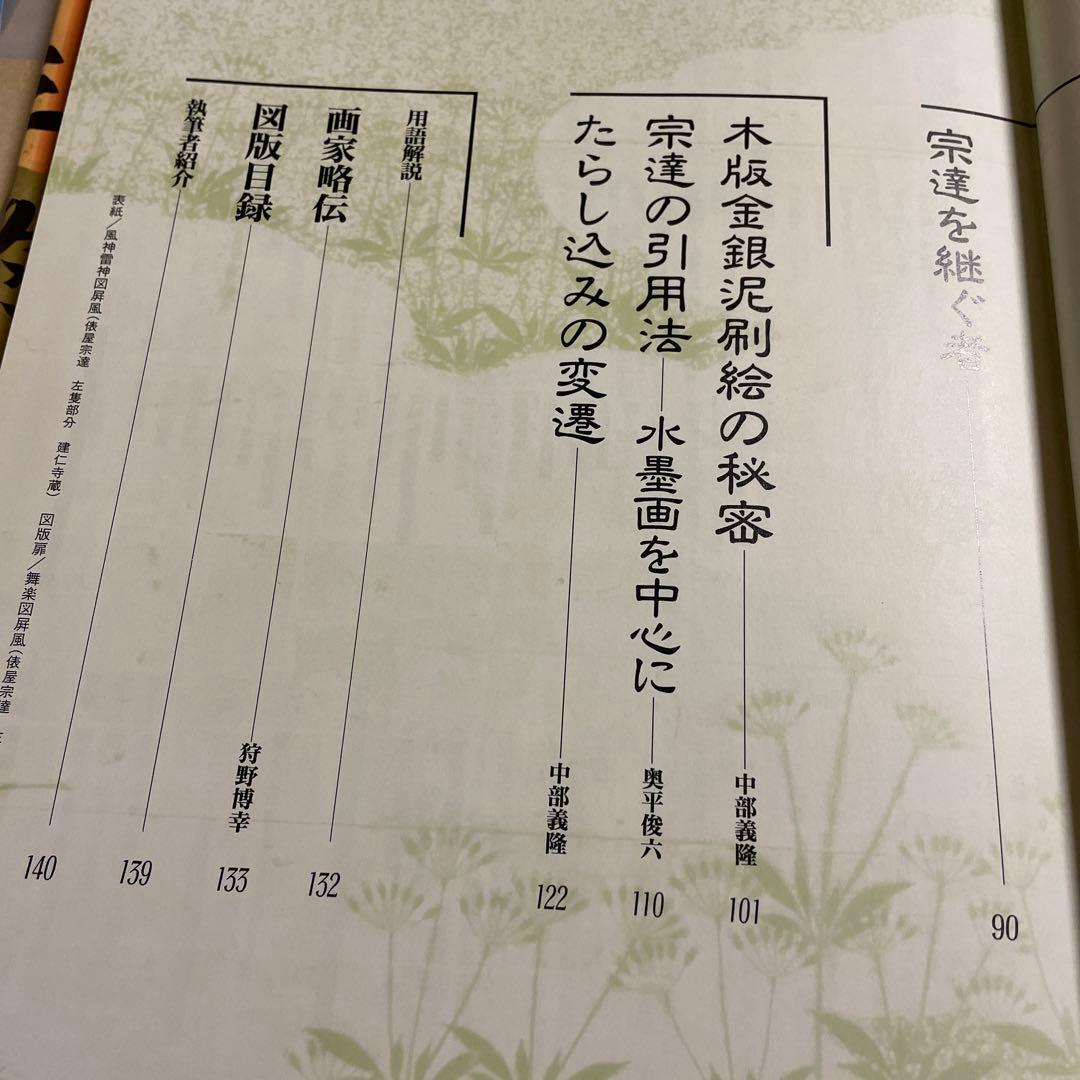 宗達を継ぐ者――90
木版金銀泥刷絵の秘密――中部義隆 101
宗達の引用法――水墨画を中心に――奥平俊六 110
たらし込みの変遷――中部義隆 122
用語解説――132
画家略伝――狩野博幸 133
図版目録――139
執筆者紹介――140
表紙／風神雷神図屏風（俵屋宗達　左隻部分　建仁寺蔵）　図版扉／舞楽図屏風（俵屋宗達